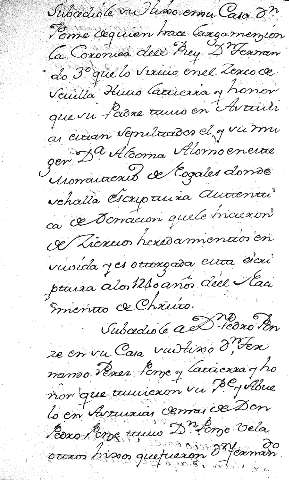 Subcediole su Hixo en su Casa Dn
Ponze de quien hace larga mencion
la Coronica del Rey Dn Fernan
do 3o que lo sirvio en el Zerco de
Sevilla tuvo la tierra y honor
que su Padre tuvo en Asturi
as estan sepultados el, y su mu
ger Da Aldonza Alonso en este
Monasterio de Nogales donde
se halla escriptura autenti
ca de Donacion que le hicieron
de Ziertos heredamientos en
su vida y es otorgada esta escri
ptura a los 1240 años del Naci
miento de Christo.
Subcediole a Dn Pedro Pon
ze en su Casa su Hixo Dn Fer
nando Perez Ponze y la tierra y ho
nor que tuvieron su Pe y Abue
lo en Asturias demas de Don
Pedro Ponze tuvo Dn Ponze Vela
otros hixos que fueron Dn Fernando